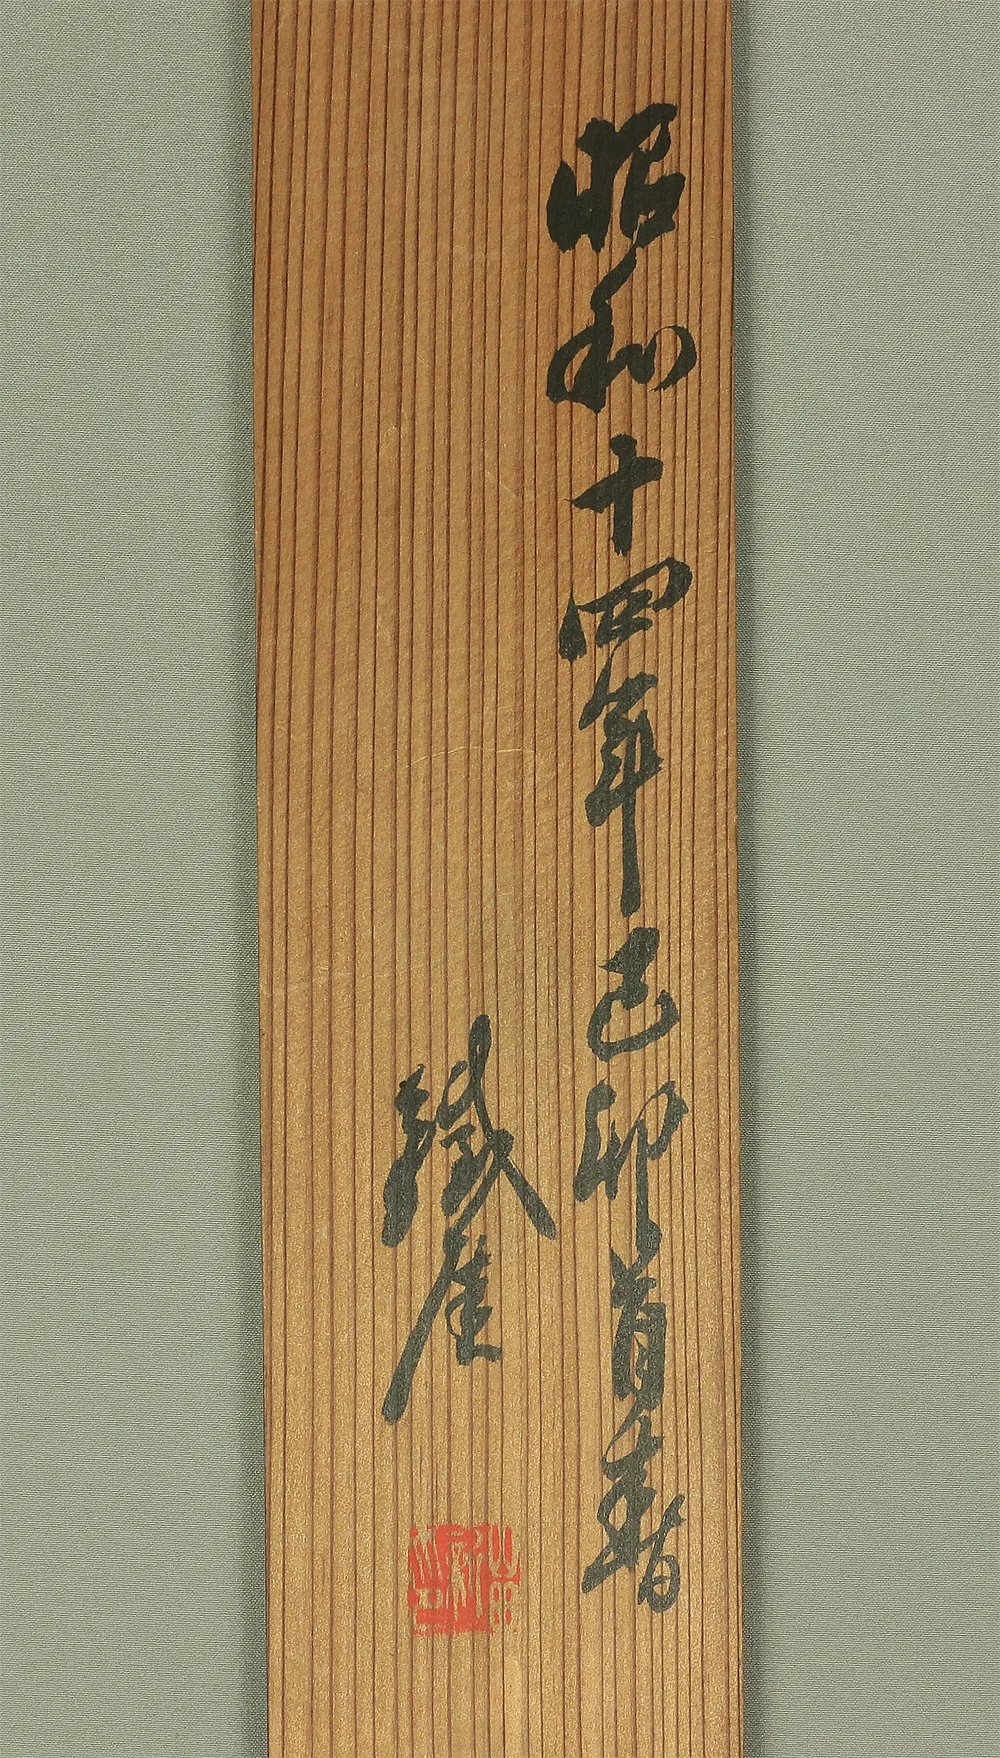 昭和十四年己卯首春
鐵崖